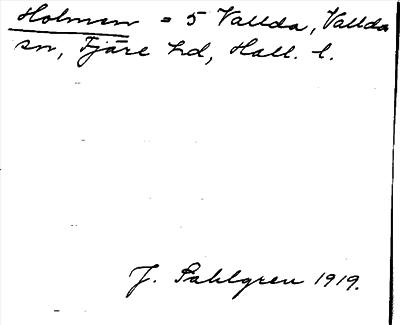 Holmen = 5 Vallda, Vallda
sn, Fjäre hd, Hall. l.
J. Sahlgren 1919.